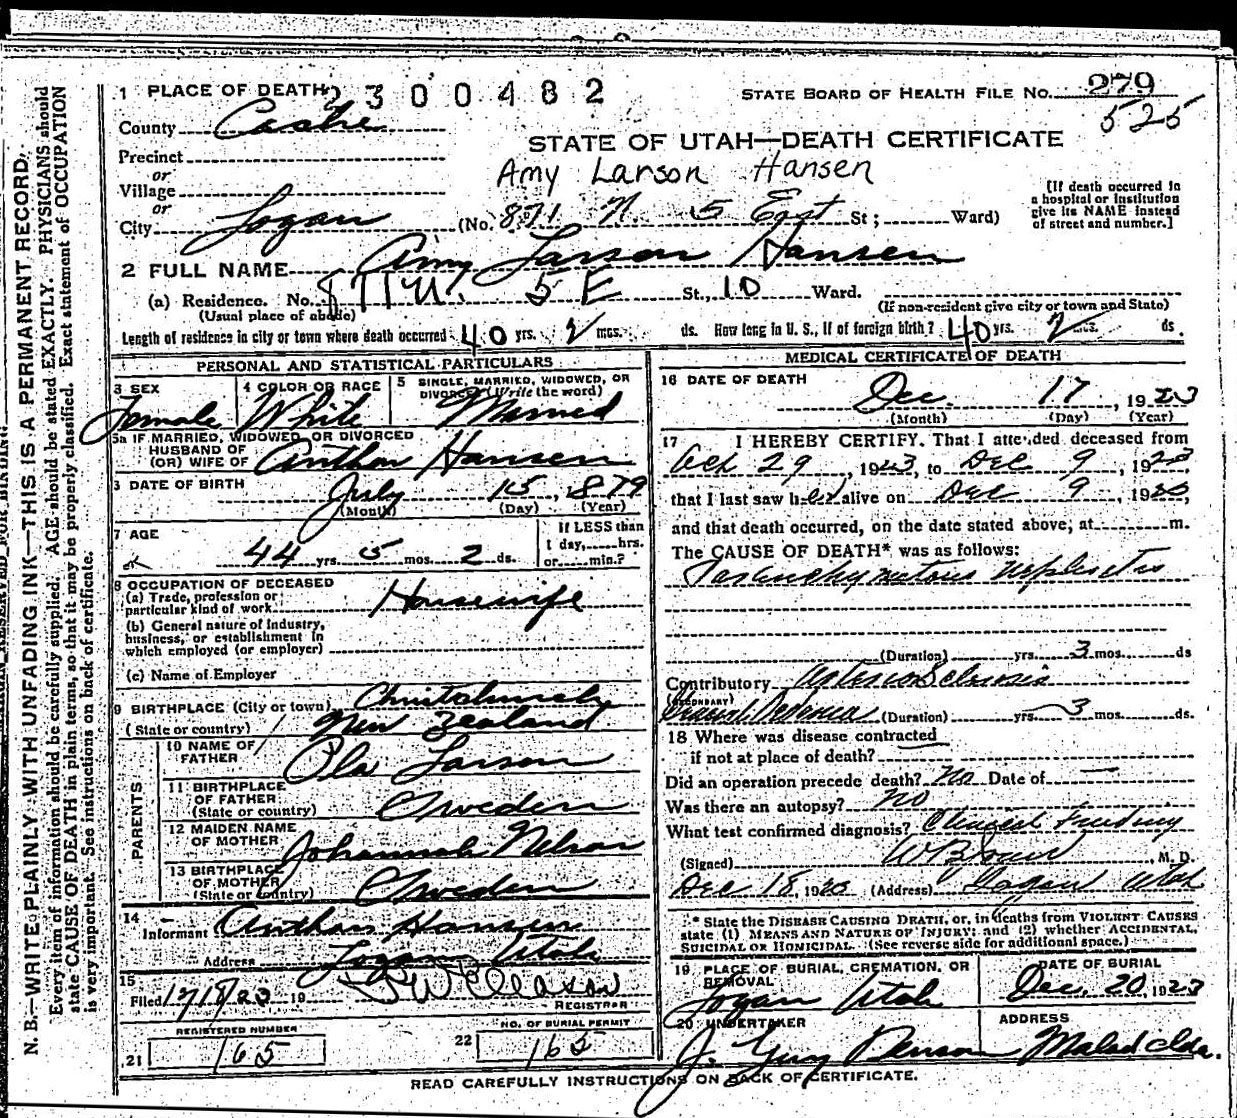 1 PLACE OF DEATH 2300482
STATE BOARD OF HEALTH FILE NO. 279
525
County Cache
STATE OF UTAH—DEATH CERTIFICATE
Precinct
or
Village
Amy Larson Hansen
[If death occurred in a hospital or institution give its NAME instead of street and number.]
or
City Logan (No. 871 N 5 East St; Ward)
2 FULL NAME Amy Larson Hansen
(a) Residence. No. 871 N. 5 E St., 10 Ward.
(Usual place of abode) (If non-resident give city or town and State)
Length of residence in city or town where death occurred 40 yrs. 2 mos. ds. How long in U. S., if of foreign birth? 40 yrs. 2 mos. ds.
PERSONAL AND STATISTICAL PARTICULARS
3 SEX Female
4 COLOR OR RACE White
5 SINGLE, MARRIED, WIDOWED, OR DIVORCED (Write the word) Married
5a IF MARRIED, WIDOWED, OR DIVORCED
HUSBAND OF
(OR) WIFE OF Anthon Hansen
6 DATE OF BIRTH July 15, 1879
(Month) (Day) (Year)
7 AGE 44 yrs. 5 mos. 2 ds.
If LESS than
1 day, hrs.
or min.?
8 OCCUPATION OF DECEASED
(a) Trade, profession or
particular kind of work Housewife
(b) General nature of industry,
business, or establishment in
which employed (or employer)
(c) Name of Employer
9 BIRTHPLACE (City or town)
(State or country) New Zealand
PARENTS
10 NAME OF
FATHER Ola Larson
11 BIRTHPLACE
OF FATHER
(State or country) Sweden
12 MAIDEN NAME
OF MOTHER Johannah Nelson
13 BIRTHPLACE
OF MOTHER
(State or country) Sweden
14
Informant Anthon Hansen
Address Logan Utah
15
Filed 12/18/23 19
REGISTRAR
REGISTERED NUMBER
21 165
NO. OF BURIAL PERMIT
22 165
MEDICAL CERTIFICATE OF DEATH
16 DATE OF DEATH
Dec. 17, 1923
(Month) (Day) (Year)
17 I HEREBY CERTIFY, That I attended deceased from
Oct 29, 1923, to Dec 9, 1923
that I last saw her alive on Dec 9, 1923,
and that death occurred, on the date stated above, at m.
The CAUSE OF DEATH* was as follows:
Parenchymatous Nephritis
(Duration) yrs. 3 mos. ds
Contributory Arterio Sclerosis
(SECONDARY) (Duration) yrs. 3 mos. ds.
18 Where was disease contracted
if not at place of death?
Did an operation precede death? No Date of —
Was there an autopsy? No
What test confirmed diagnosis? Clinical Finding
(Signed) M. D.
Dec 18, 1923 (Address) Logan Utah
* State the DISEASE CAUSING DEATH, or, in deaths from VIOLENT CAUSES
state (1) MEANS AND NATURE OF INJURY; and (2) whether ACCIDENTAL,
SUICIDAL OR HOMICIDAL. (See reverse side for additional space.)
19 PLACE OF BURIAL, CREMATION, OR
REMOVAL
Logan Utah
DATE OF BURIAL
Dec. 20, 1923
20 UNDERTAKER
J. Guy Benson
ADDRESS
Malad Ida.
READ CAREFULLY INSTRUCTIONS ON BACK OF CERTIFICATE.
N. B.—WRITE PLAINLY WITH UNFADING INK—THIS IS A PERMANENT RECORD.
Every item of information should be carefully supplied. AGE should be stated EXACTLY. PHYSICIANS should
state CAUSE OF DEATH in plain terms, so that it may be properly classified. Exact statement of OCCUPATION
is very important. See instructions on back of certificate.